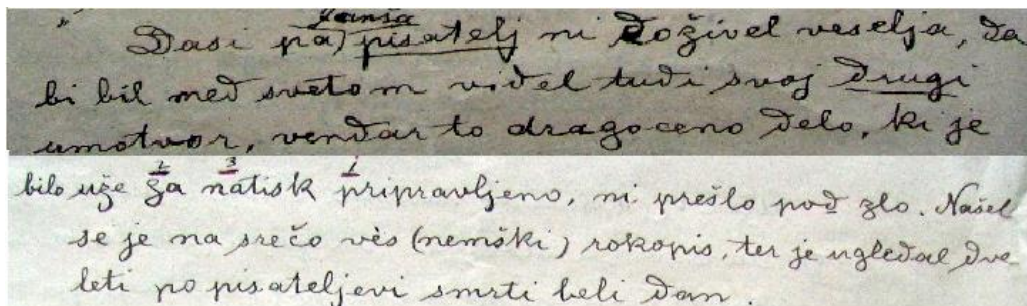 Janša
Dasi pa pisatelj ni doživel veselja, da
bi bil med svetom videl tudi svoj drugi
umotvor, vendar to dragoceno delo, ki je
2 3 1
bilo uže za natisk pripravljeno, ni prešlo pod zlo. Našel
se je na srečo vès (nemški) rokopis, ter je ugledal dve
leti po pisateljevi smrti beli dan.